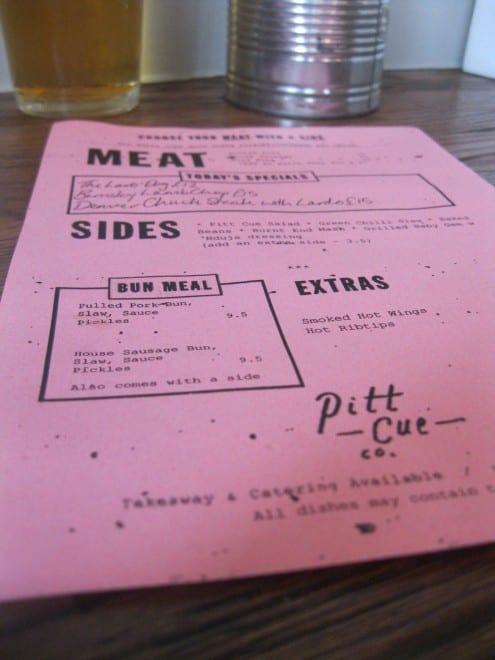 CHOOSE YOUR MEAT WITH A SIDE
MEAT
TODAY'S SPECIALS
£12
Barnsley Lamb Chop £15
Denver Chuck Steak with Lardo £15
SIDES
* Pitt Cue Salad * Green Chilli Slaw * Baked
Beans * Burnt End Mash * Grilled Baby Gem w
'Nduja dressing
(add an extra side - 3.5)
***
BUN MEAL
Pulled Pork Bun,
Slaw, Sauce
Pickles 9.5
House Sausage Bun,
Slaw, Sauce 9.5
Pickles
Also comes with a side
EXTRAS
Smoked Hot Wings
Hot Ribtips
Pitt
Cue
co.
Takeaway & Catering Available /
All dishes may contain t